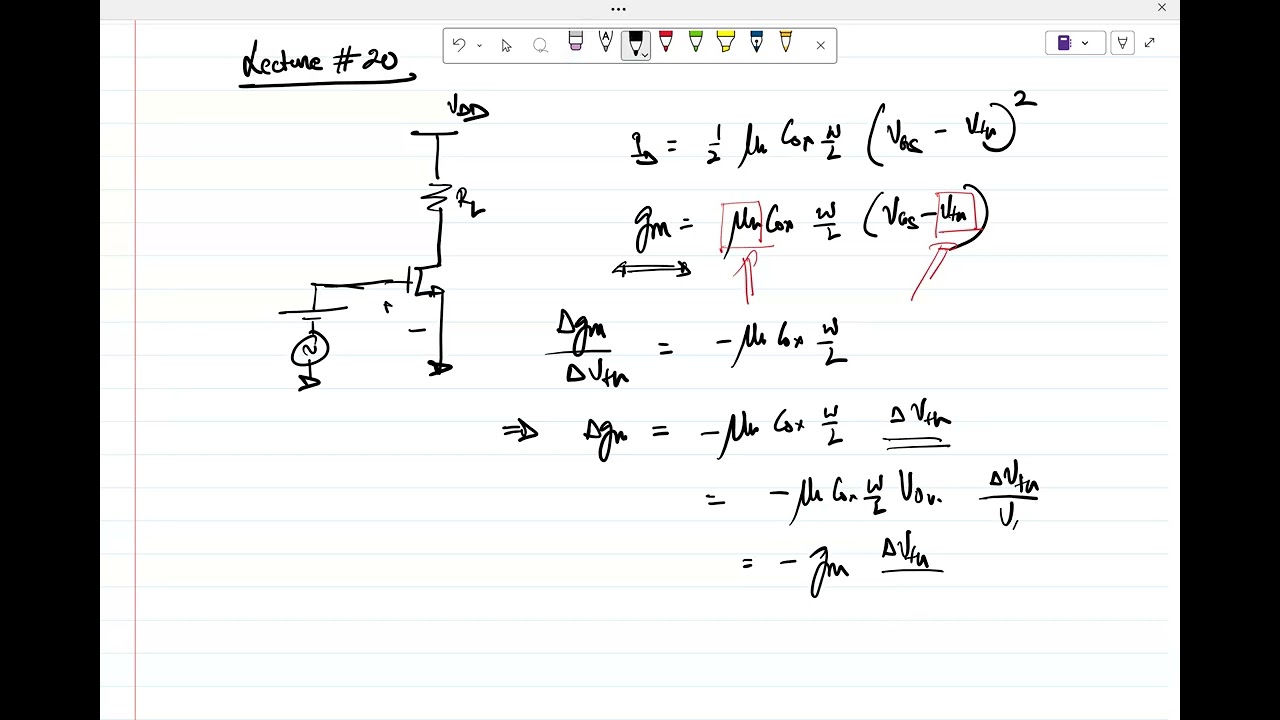 Lecture #20
VDD
RL
+
-
ID = 1/2 μn Cox W/L (VGS - Vtn)^2
gm = μn Cox W/L (VGS - Vtn)
Δgm/ΔVtn = -μn Cox W/L
⇒ Δgm = -μn Cox W/L ΔVtn
= -μn Cox W/L VOv. ΔVtn/V
= -gm ΔVtn